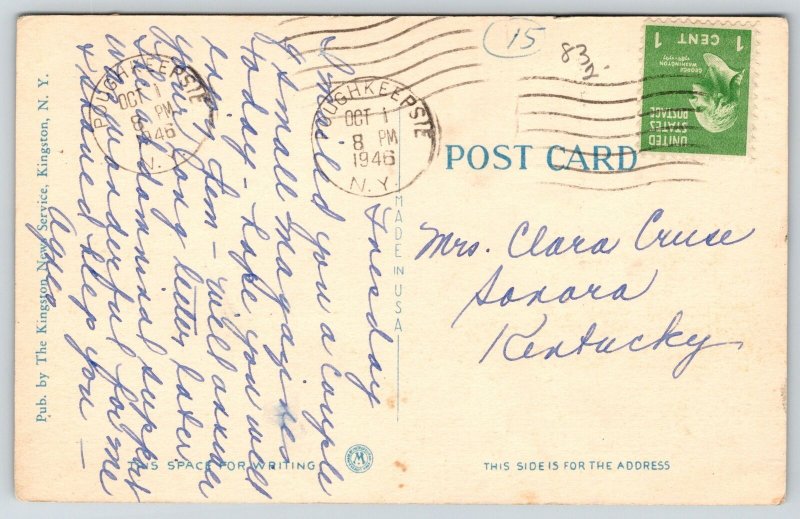 15
83
POUGHKEEPSIE
OCT 1
8 PM
1946
N.Y.
POUGHKEEPSIE
OCT 1
8 PM
1946
N.
1 CENT 1
GEORGE
WASHINGTON
UNITED
STATES
POSTAGE
POST CARD
Tuesday
I mailed you a couple
of small magazines
to-day - hope you will
enjoy them - will answer
your long letter later.
The abdominal support
is wonderful for me
& Agnes
Mrs. Clara Cruse
Sonora
Kentucky
MADE IN USA
Pub. by The Kingston News Service, Kingston, N. Y.
THIS SPACE FOR WRITING
THIS SIDE IS FOR THE ADDRESS